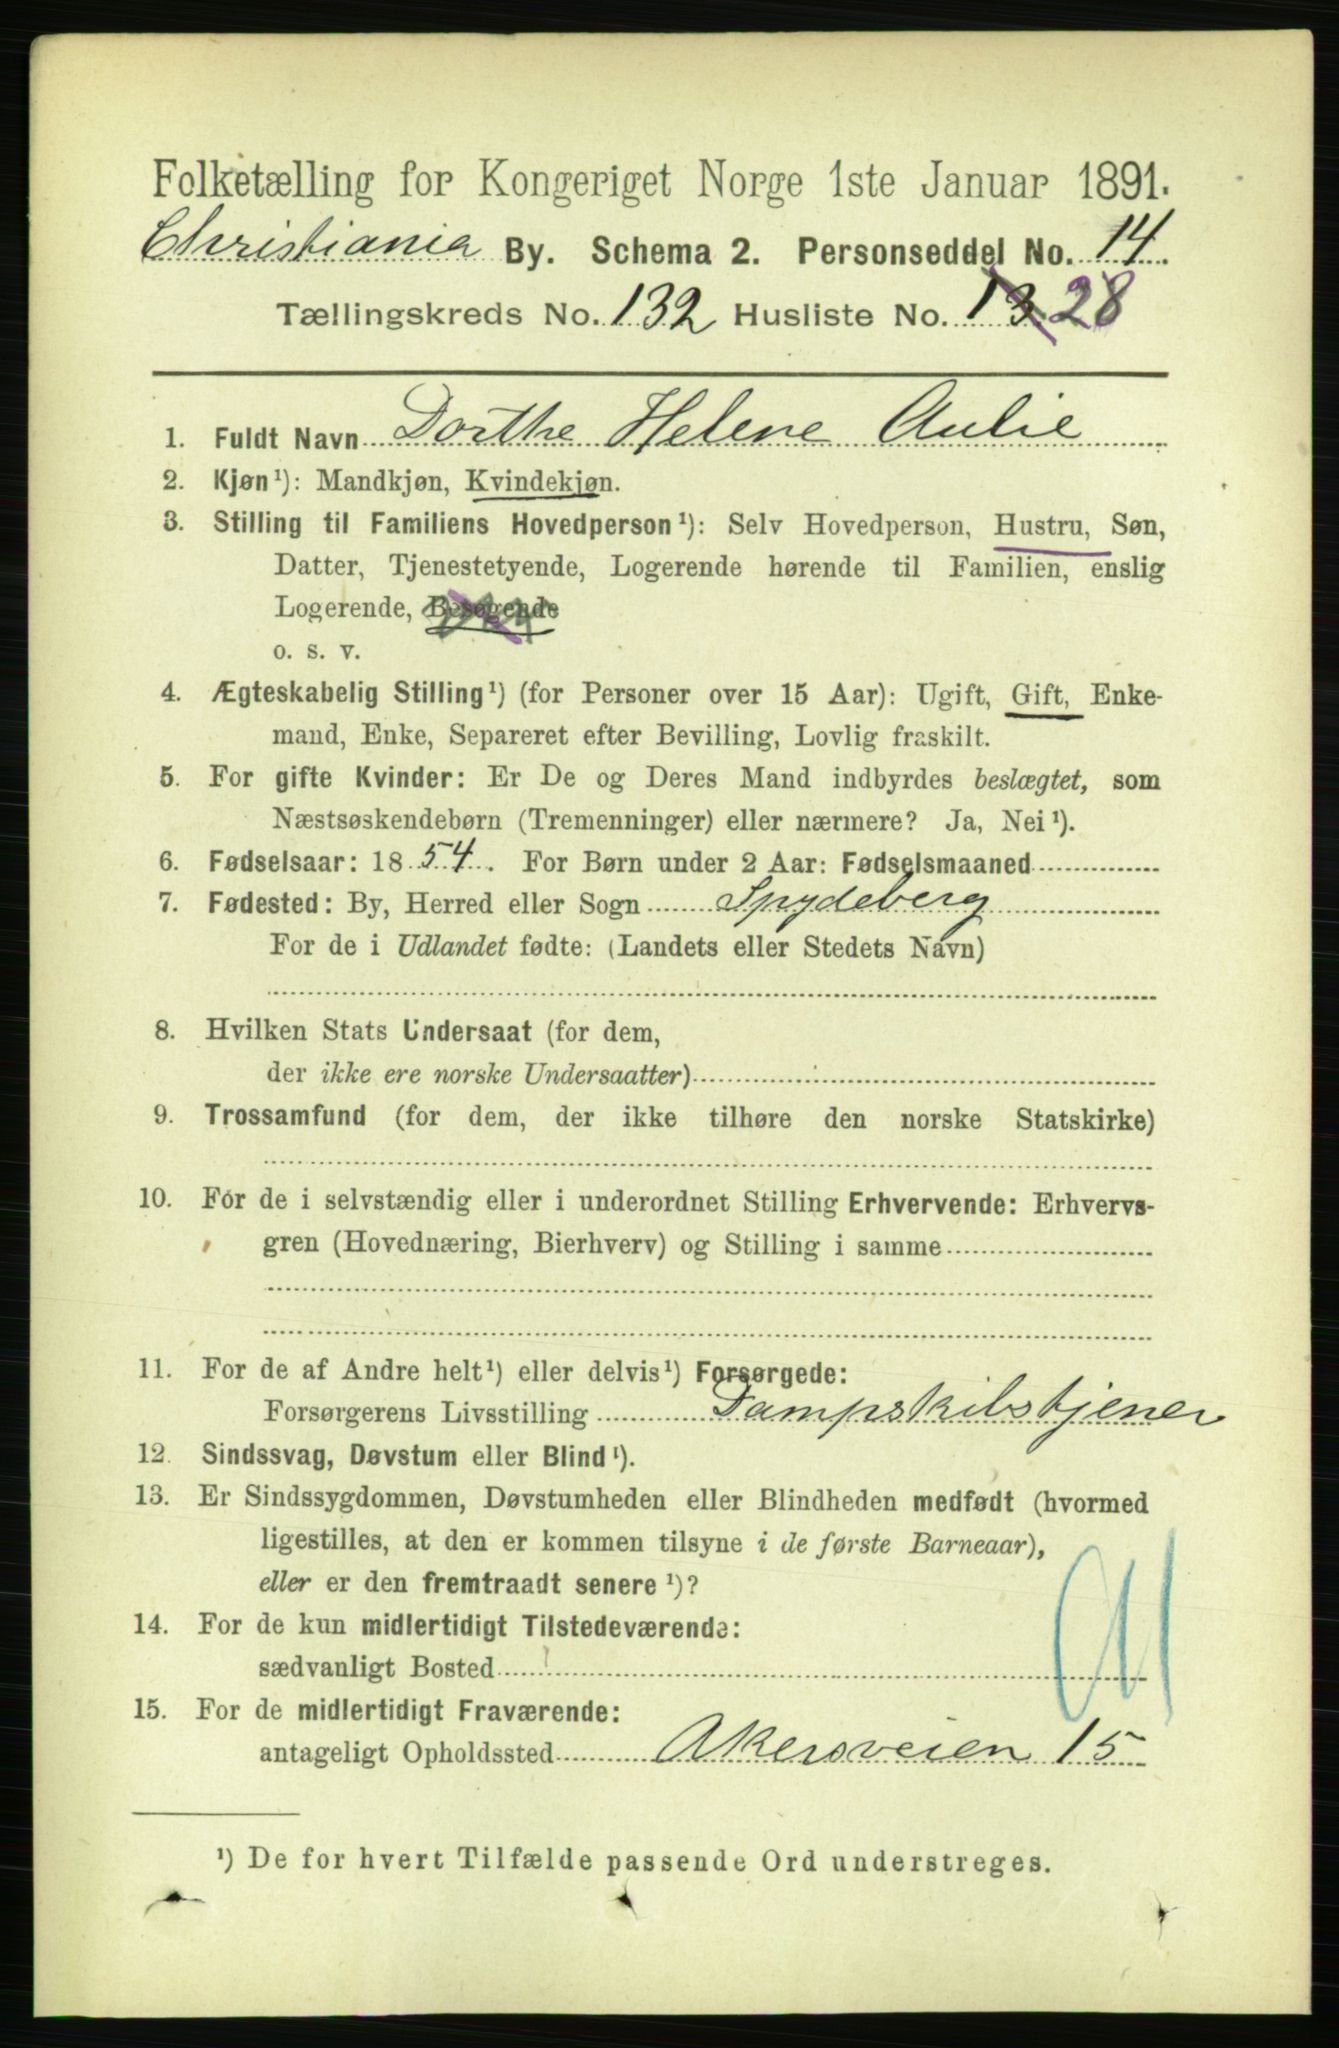 Folketælling for Kongeriget Norge 1ste Januar 1891.
Christiania By. Schema 2. Personseddel No. 14
Tællingskreds No. 132 Husliste No. 13 28
1. Fuldt Navn Dorthe Helene Aulie
2. Kjøn¹): Mandkjøn, Kvindekjøn.
3. Stilling til Familiens Hovedperson¹): Selv Hovedperson, Hustru, Søn,
Datter, Tjenestetyende, Logerende hørende til Familien, enslig
Logerende, Besøgende
o. s. v.
4. Ægteskabelig Stilling¹) (for Personer over 15 Aar): Ugift, Gift, Enke-
mand, Enke, Separeret efter Bevilling, Lovlig fraskilt.
5. For gifte Kvinder: Er De og Deres Mand indbyrdes beslægtet, som
Næstsøskendebørn (Tremenninger) eller nærmere? Ja, Nei¹).
6. Fødselsaar: 1854. For Børn under 2 Aar: Fødselsmaaned
7. Fødested: By, Herred eller Sogn Spydeberg
For de i Udlandet fødte: (Landets eller Stedets Navn)
8. Hvilken Stats Undersaat (for dem,
der ikke ere norske Undersaatter)
9. Trossamfund (for dem, der ikke tilhøre den norske Statskirke)
10. For de i selvstændig eller i underordnet Stilling Erhvervende: Erhvervs-
gren (Hovednæring, Bierhverv) og Stilling i samme
11. For de af Andre helt¹) eller delvis¹) Forsørgede:
Forsørgerens Livsstilling Dampskibstjener
12. Sindssvag, Døvstum eller Blind¹).
13. Er Sindssygdommen, Døvstumheden eller Blindheden medfødt (hvormed
ligestilles, at den er kommen tilsyne i de første Barneaar),
eller er den fremtraadt senere¹)?
14. For de kun midlertidigt Tilstedeværende:
sædvanligt Bosted
15. For de midlertidigt Fraværende:
antageligt Opholdssted Akersveien 15
¹) De for hvert Tilfælde passende Ord understreges.